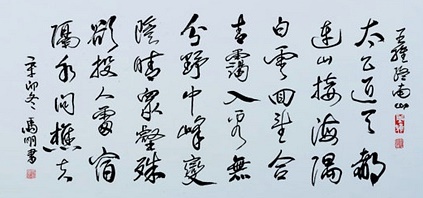 王維終南山
太乙近天都
連山接海隅
白雲回望合
青靄入看無
分野中峰變
陰晴眾壑殊
欲投人處宿
隔水問樵夫
辛卯冬 明書